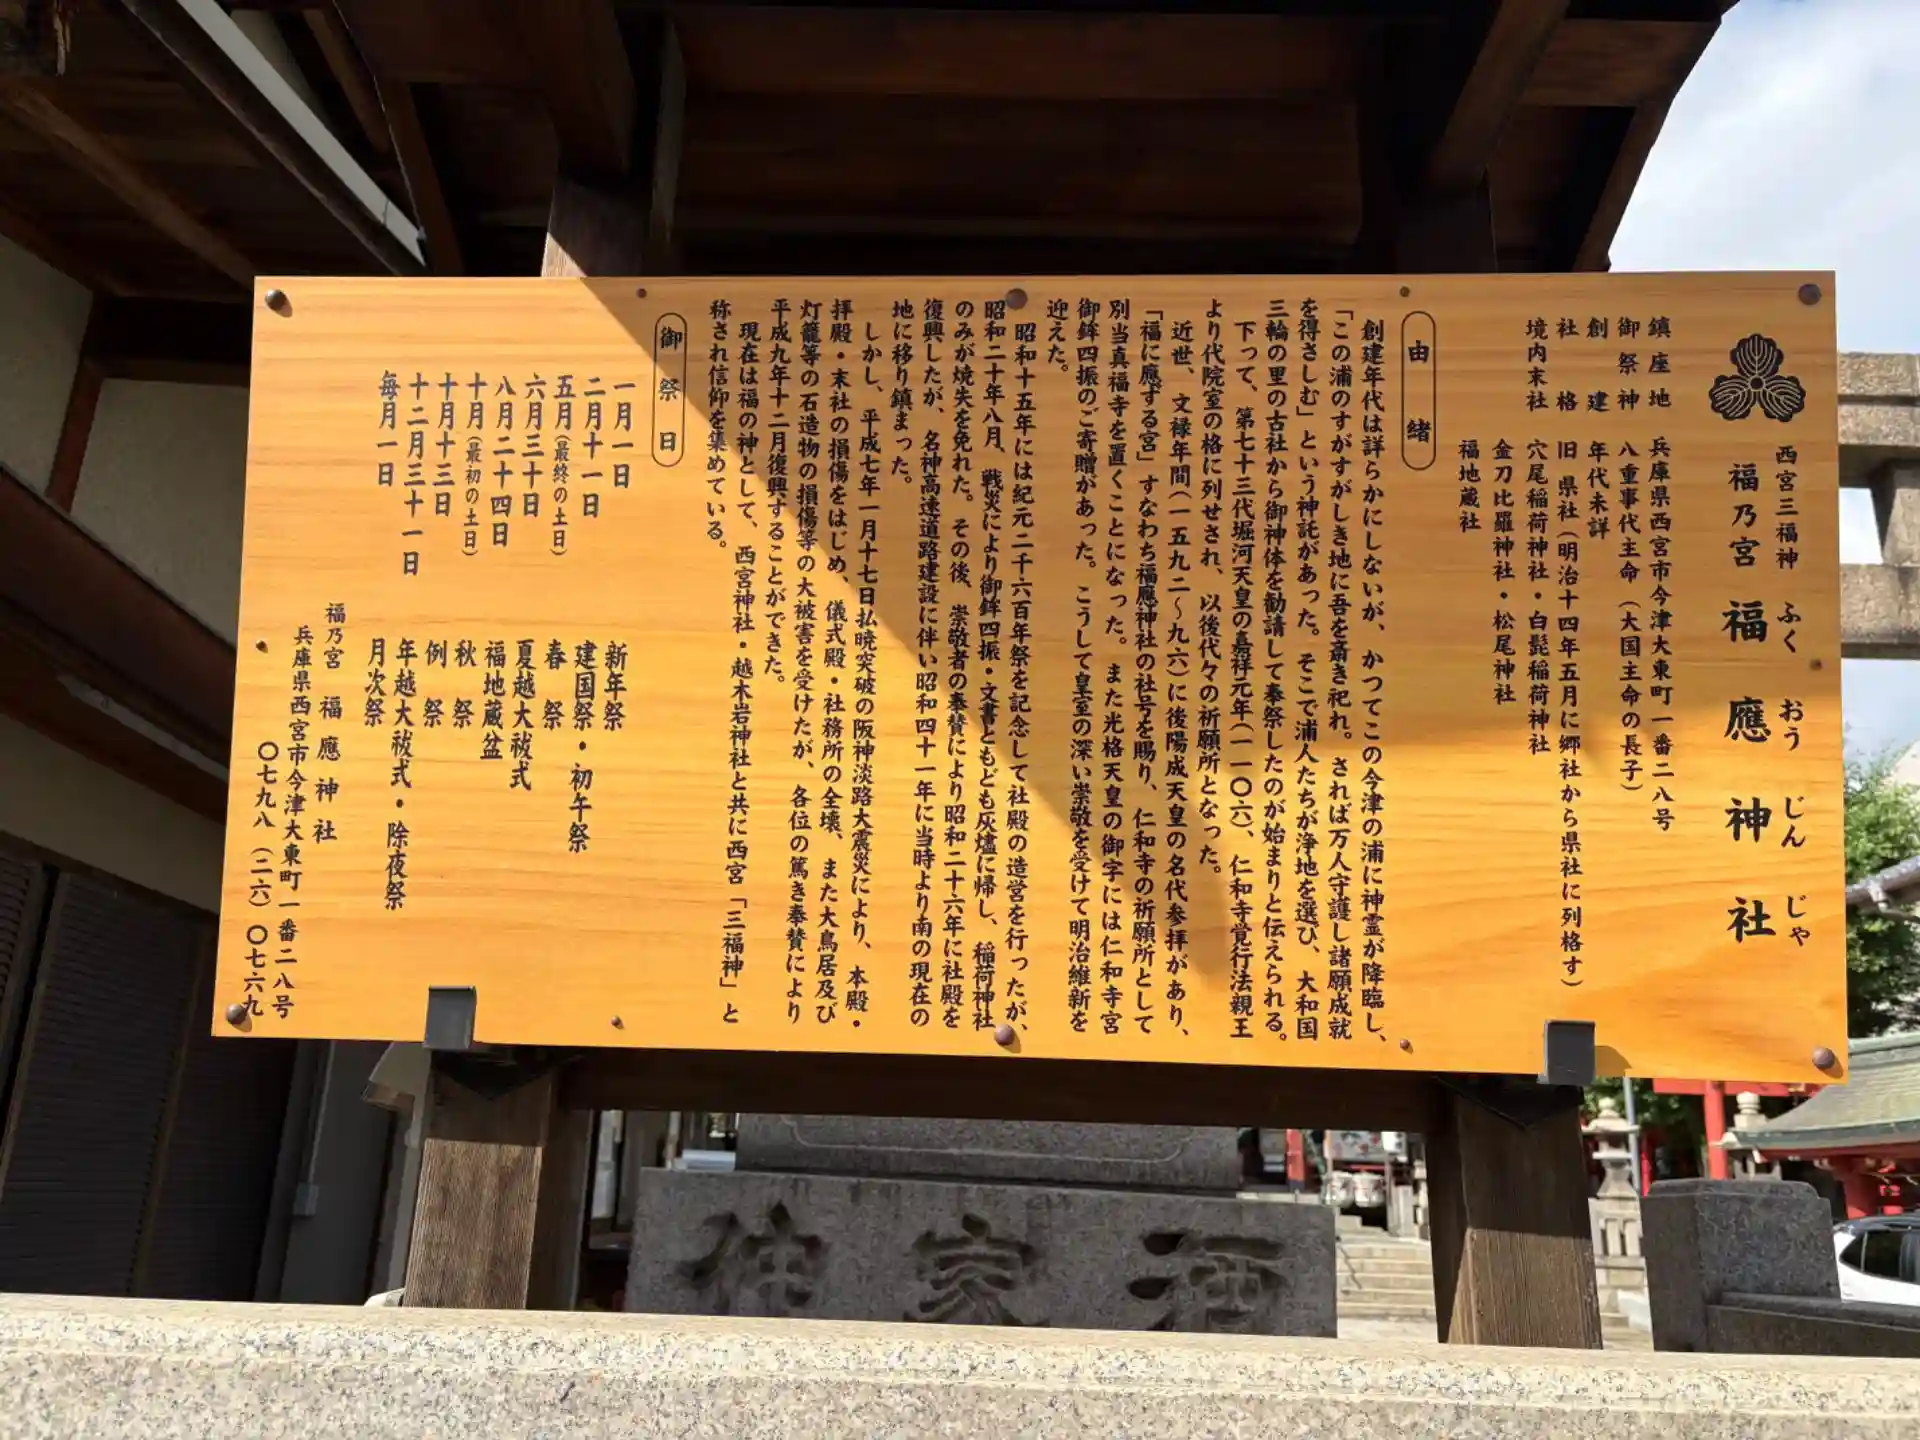 西宮三福神
福乃宮 福應神社
ふく おう じん じゃ
鎮座地 兵庫県西宮市今津大東町一番二八号
御祭神 八重事代主命(大国主命の長子)
創建 年代未詳
社格 旧 県社(明治十四年五月に郷社から県社に列格す)
境内末社 穴尾稲荷神社・白髭稲荷神社
金刀比羅神社・松尾神社
福地蔵社
由緒
創建年代は詳らかにしないが、かつてこの今津の浦に神霊が降臨し、
「この浦のすがすがしき地に吾を斎き祀れ。されば万人守護し諸願成就
を得さしむ」という神託があった。そこで浦人たちが浄地を選び、大和国
三輪の里の古社から御神体を勧請して奉祭したのが始まりと伝えられる。
下って、第七十三代堀河天皇の嘉祥元年(一一〇六)、仁和寺覚行法親王
より代院室の格に列せされ、以後代々の祈願所となった。
近世、文禄年間(一五九二〜九六)に後陽成天皇の名代参拝があり、
「福に應ずる宮」すなわち福應神社の社号を賜り、仁和寺の祈願所として
別当真福寺を置くことになった。また光格天皇の御字には仁和寺宮
御鉾四振のご寄贈があった。こうして皇室の深い崇敬を受けて明治維新を
迎えた。
昭和十五年には紀元二千六百年祭を記念して社殿の造営を行ったが、
昭和二十年八月、戦災により御鉾四振・文書ともども灰燼に帰し、稲荷神社
のみが焼失を免れた。その後、崇敬者の奉賛により昭和二十六年に社殿を
復興したが、名神高速道路建設に伴い昭和四十一年に当時より南の現在の
地に移り鎮まった。
しかし、平成七年一月十七日払暁突破の阪神淡路大震災により、本殿・
拝殿・末社の損傷をはじめ、儀式殿・社務所の全壊、また大鳥居及び
灯籠等の石造物の損傷等の大被害を受けたが、各位の篤き奉賛により
平成九年十二月復興することができた。
現在は福の神として、西宮神社・越木岩神社と共に西宮「三福神」と
称され信仰を集めている。
御祭日
一月一日 新年祭
二月十一日 建国祭・初午祭
五月(最終の土日) 春祭
六月三十日 夏越大祓式
八月二十四日 福地蔵盆
十月(最初の土日) 秋祭
十月十三日 例祭
十二月三十一日 年越大祓式・除夜祭
毎月一日 月次祭
福乃宮 福應神社
兵庫県西宮市今津大東町一番二八号
〇七九八(二六)〇七六九
酒家仲